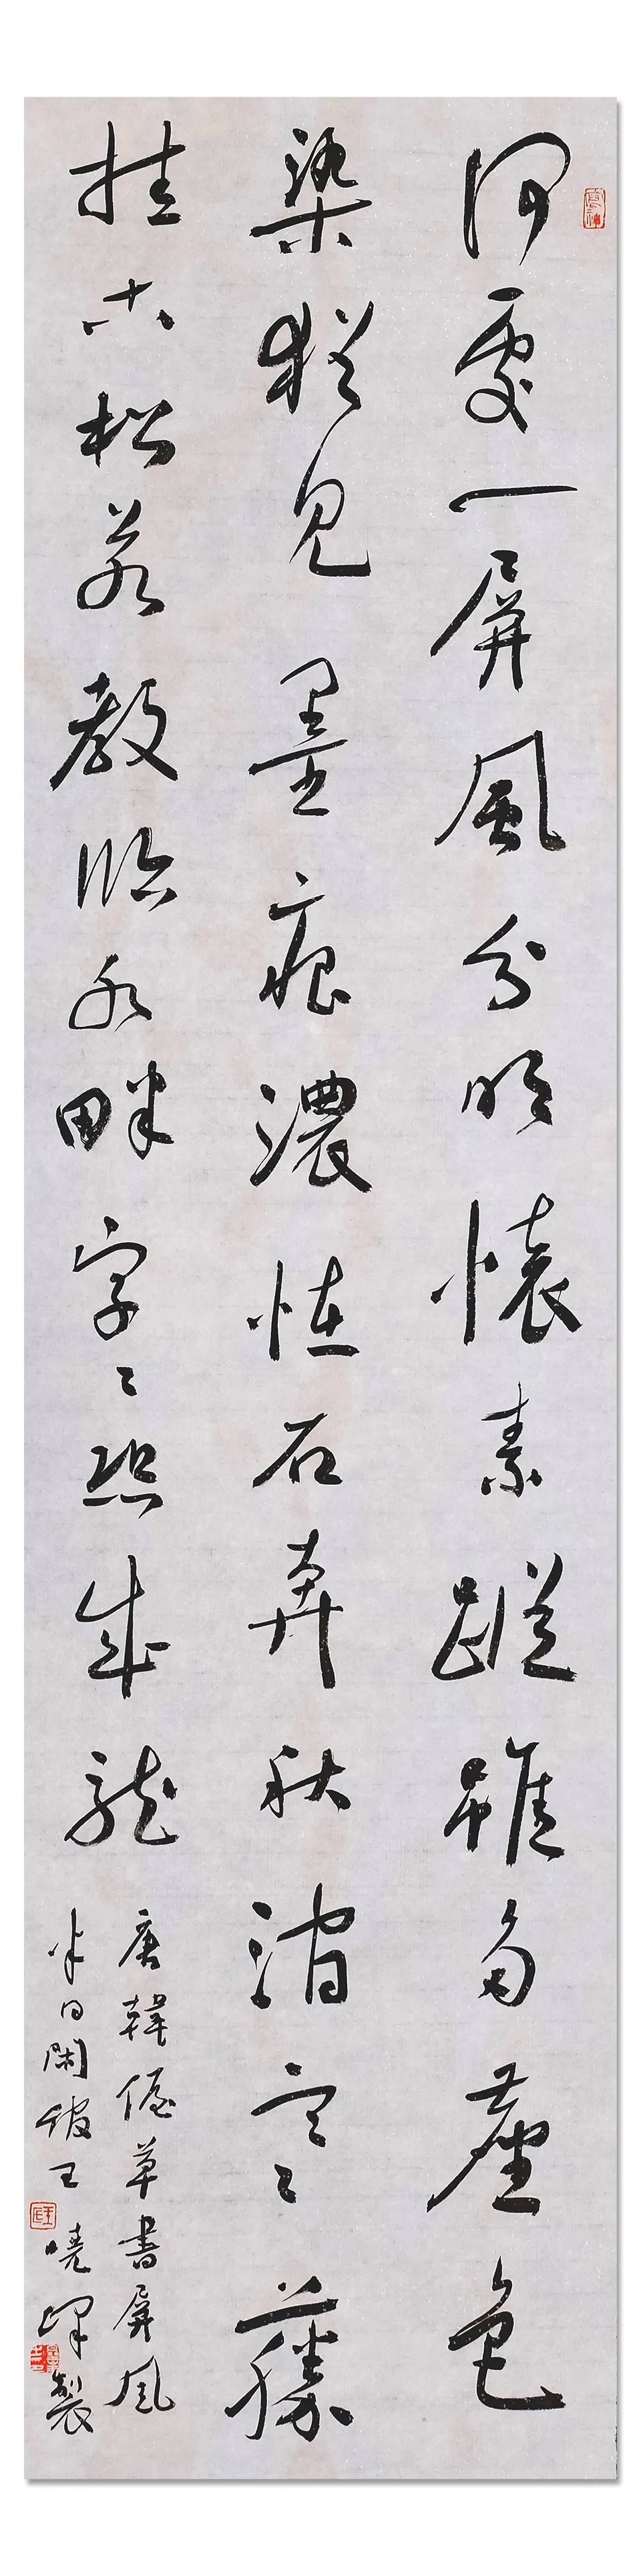 何處一屏風分明懷素蹤雖多塵色
染猶見墨痕濃恠石奔秋澗寒藤
挂古松若教臨水畔字〻恐成龍
唐韓偓草書屏風
半日閑館王曉峰製